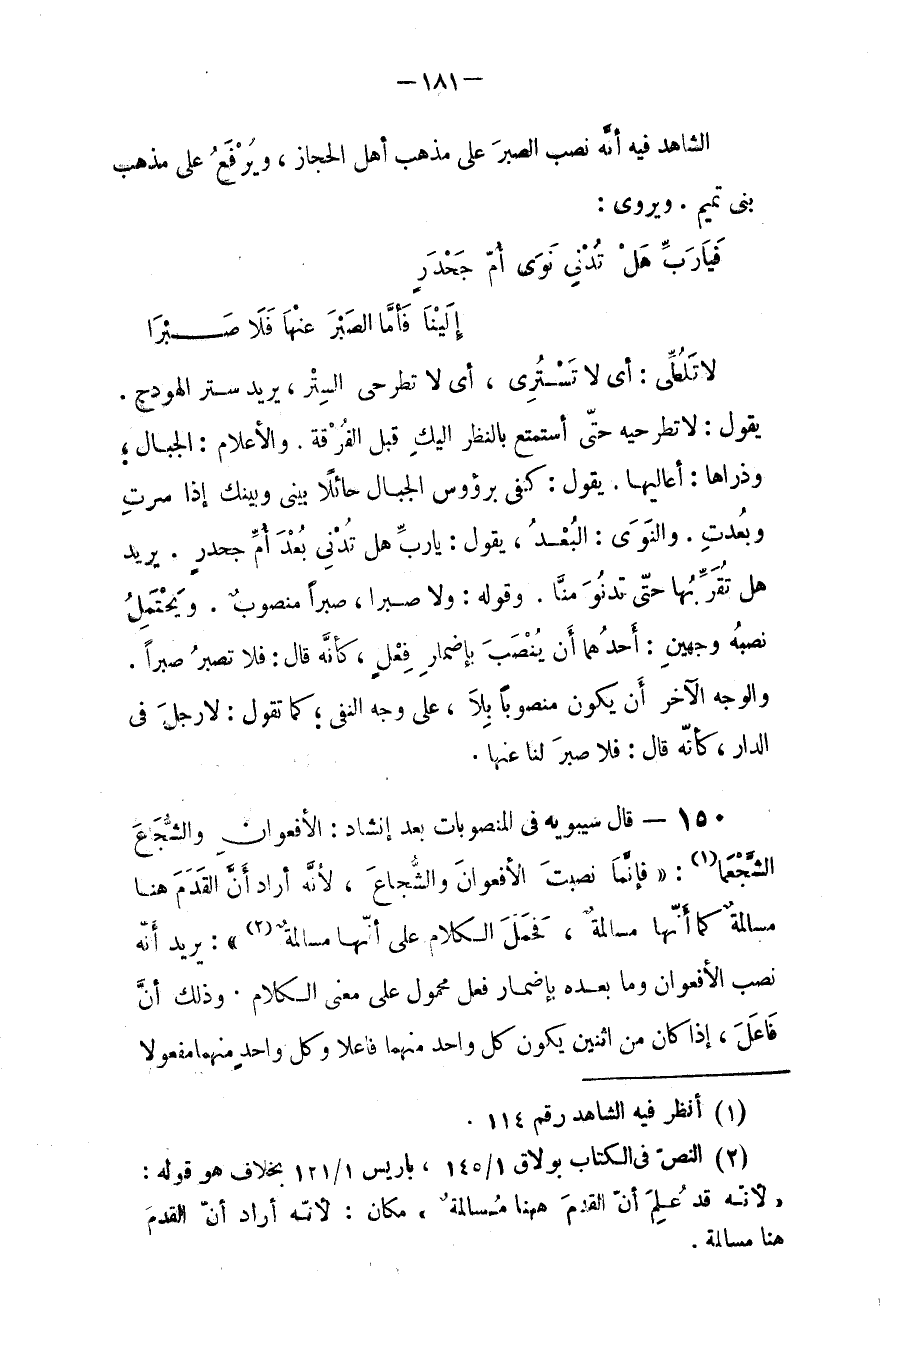 — ١٨١ —
الشاهد فيه أنَّه نصب الصبرَ على مذهب أهل الحجاز ، ويُرْفَعُ على مذهب
بنى تميم . ويروى :
فَيَارَبِّ هَلْ تُدْنِي نَوَى أُمّ جَحْدَرٍ
إِلَيْنَا فَأمَّا الصَبْرَ عنْهَا فَلَا صَـــبْرَا
لاتَلُطِّى : أى لا تَسْـتُرِى ، أى لا تطرحى السِتْر ، يريد ستر الهودج .
يقول : لاتطرحيه حتّى أستمتع بالنظر اليكِ قبل الفُرْقة . والأعلام : الجبـال ؛
وذراها : أعاليهـا . يقول : كفى برؤوس الجبـال حائلًا بينى وبينك إذا سرتِ
وبعُدتِ . والنَوَى : البُعْـدُ ، يقول : ياربِّ هل تُدْنِي بُعْدَ أُمِّ جحدرٍ . يريد
هل تُقَرِّبُها حتّى تدنوَ منَّا . وقوله : ولا صـبرا ، صبراً منصوبٌ . ويَحْتَمِلُ
نصبُه وجهينِ : أَحدُهما أَن يُنْصَبَ بإضمارِ فِعْلٍ ، كأنَّه قال : فلا تصبرُ صبراً .
والوجه الآخر أَن يكون منصوباً بِلاَ ، على وجه النفى ؛ كما تقول : لارجلَ فى
الدار ، كأنّه قال : فلا صبرَ لنا عنها .
١٥٠ — قال سيبويه فى المنصوبات بعد إنشاد : الأفعوانَ والشُّجَاعَ
الشَّجْعَما(١) : « فإنَّمَا نصبتَ الأفعوانَ والشُّجاعَ ، لأنَّه أراد أَنَّ القَدَمَ هنـا
مسالمةٌ كما أَنّها مسالمةٌ ، فَحَمَلَ الـكلام على أنّهـا مسالمةٌ(٢) » : يريد أنَّه
نصب الأفعوان وما بعـده بإضمـار فعل محمول على معنى الـكلام . وذلك أنَّ
فَاعَلَ ، إذا كان من اثنين يكون كل واحد منهما فاعلا وكل واحدٍ منهما مفعولا
(١) أنظر فيه الشاهد رقم ١١٤ .
(٢) النصّ فى الكتاب بولاق ١٤٥/١ ، باريس ١٢١/١ بخلاف هو قوله :
« لأنّـه قد عُـلِمَ أنّ القدمَ ههنا مُـسالمةٌ » مكان : لأنّـه أراد أنّ القدمَ
هنا مسالمة .